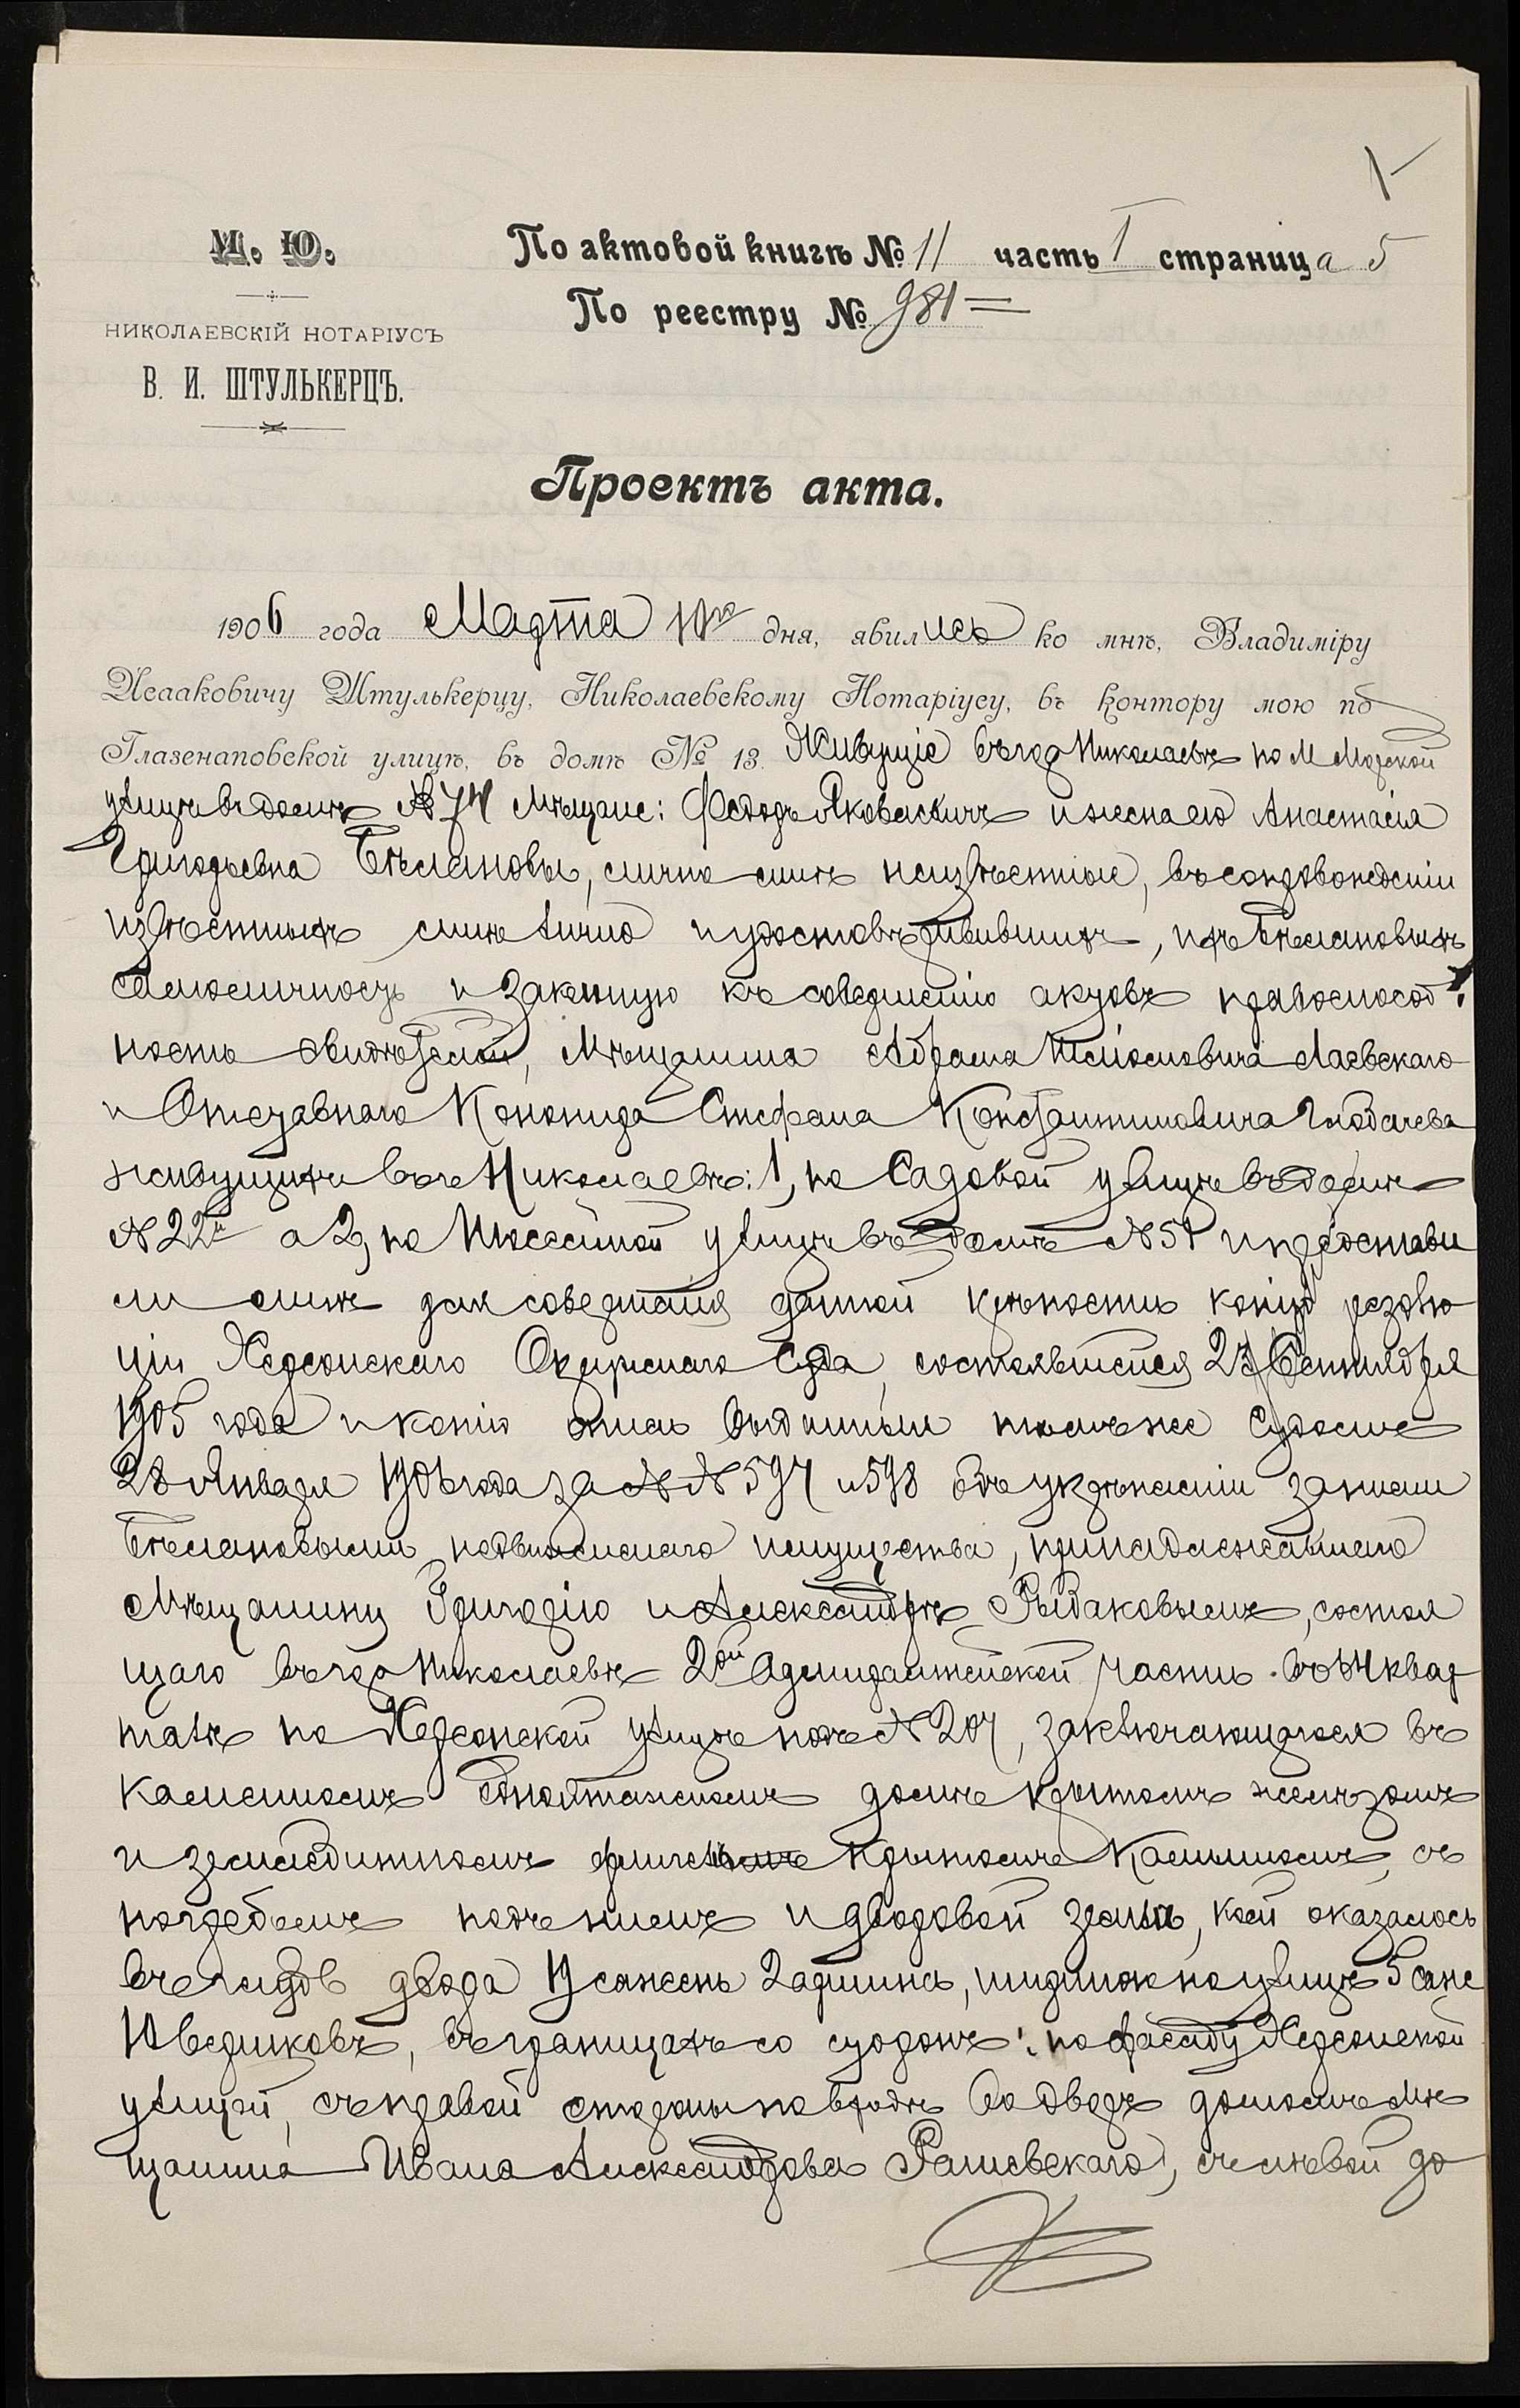 1
М. Ю.
НИКОЛАЕВСКІЙ НОТАРІУСЪ
В. И. ШТУЛЬКЕРЦЪ.
По актовой книгѣ № 11 часть I страница 5
По реестру № 981=
Проектъ акта.
1906 года Марта 10го дня, явились ко мнѣ, Владиміру
Исааковичу Штулькерцу, Николаевскому Нотаріусу, въ контору мою по
Глазенаповской улицѣ, въ домѣ № 13. Живущіе въ гор Николаевѣ по М Морской
улицѣ въ домѣ № 74 Мѣщане: Федоръ Яковлевичъ и жена его Анастасія
Григорьевна Бѣлановы, лично мнѣ неизвѣстные, въ сопровожденіи
извѣстныхъ мнѣ лично и удостовѣрившихъ, ихъ Бѣлановыхъ
самоличность и законную къ совершенію актовъ правоспособ
ность свидѣтелей, Мѣщанина Абрама Лаевскаго
и Отставного Стефана Константиновича
живущихъ въ г Николаевѣ: 1, по Садовой улицѣ въ домѣ
№ 22 а 2, по улицѣ въ домѣ № 51 и представи
ли мнѣ для совершенія данной крѣпости копію резолю
ціи Херсонскаго Окружнаго Суда, состоявшейся 23 Сентября
1905 года и копію описи выданныя тѣмъ же Судомъ
28 Января 1906 года за №№ 597 и 598 объ укрѣпленіи за ними
Бѣлановыми недвижимаго имущества, принадлежавшаго
Мѣщанину Григорію и Александрѣ Рыбаковымъ, состоя
щаго въ гор Николаевѣ 2ой Адмиралтейской части въ 64 квар
талѣ по Херсонской улицѣ подъ № 207, заключающагося въ
каменномъ одноэтажномъ домѣ крытомъ желѣзомъ
и землебитномъ флигелѣ крытомъ камышомъ, съ
погребомъ подъ нимъ и дворовой земли, коей оказалось
въ глубь двора 19 сажень 2 аршина, шириною по улицѣ 5 саж
10 вершковъ, въ границахъ со сторонъ: по фасаду Херсонской
улицей, съ правой стороны по входѣ во дворъ домомъ Мѣ
щанина Ивана Александрова Рашевскаго, съ лѣвой до